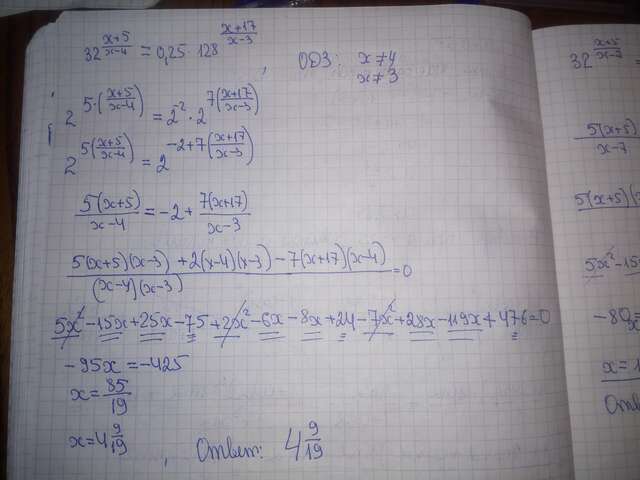 32^((x+5)/(x-4)) = 0,25 · 128^((x+17)/(x-3))
ОДЗ: x ≠ 4
x ≠ 3
2^(5((x+5)/(x-4))) = 2^(-2) · 2^(7((x+17)/(x-3)))
2^(5((x+5)/(x-4))) = 2^(-2+7((x+17)/(x-3)))
5(x+5)/(x-4) = -2 + 7(x+17)/(x-3)
(5(x+5)(x-3) + 2(x-4)(x-3) - 7(x+17)(x-4))/((x-4)(x-3)) = 0
5x² - 15x + 25x - 75 + 2x² - 6x - 8x + 24 - 7x² + 28x - 119x + 476 = 0
-95x = -425
x = 85/19
x = 4 9/19
Ответ: 4 9/19
32^((x+5)/(x-7)) =
5(x+5)/(x-7)
5(x+5)(
5x² - 15
-80x
x = 1